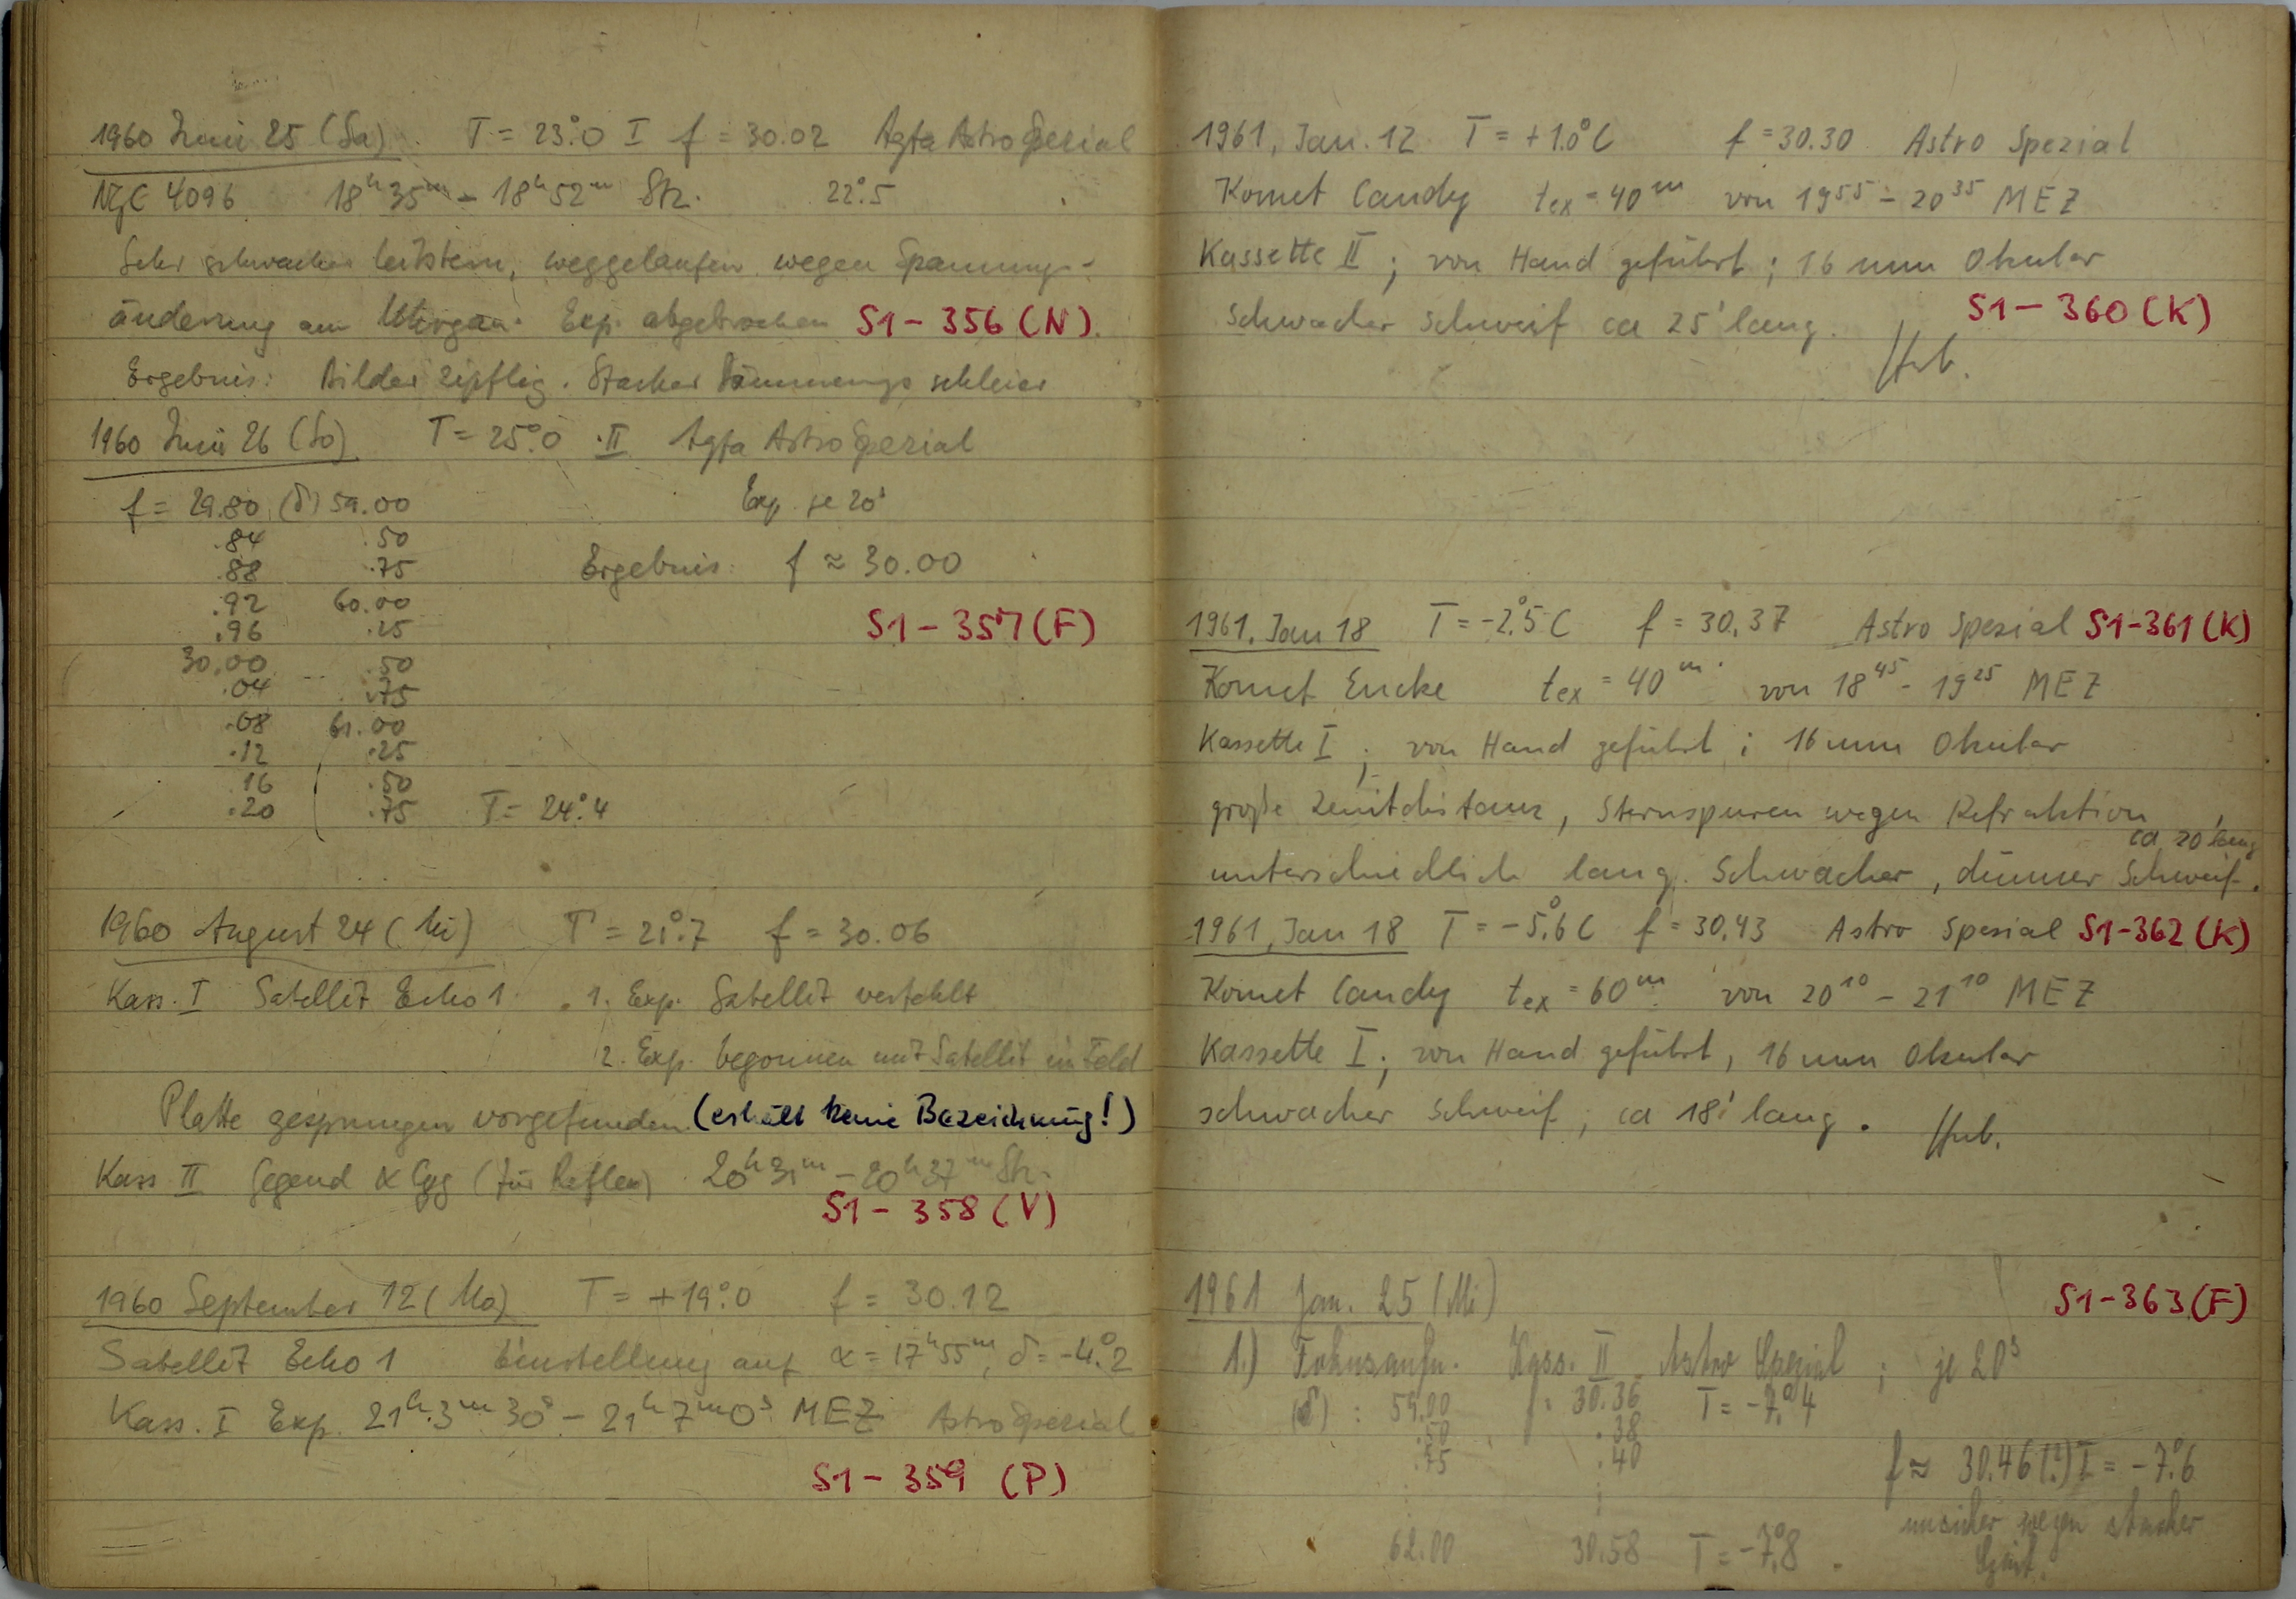 1960 Juni 25 (Sa) T = 23°.0 I f = 30.02 Agfa Astro Spezial
NGC 4096 18h 35m – 18h 52m Stz. 22°.5
Sehr schwacher Leitstern, weggelaufen wegen Spannungs-
änderung am Exp. abgebrochen S1-356 (N).
Ergebnis: Bilder zipflig. Starker Dämmerungsschleier
1960 Juni 26 (So) T = 25°.0 II Agfa Astro Spezial
f = 29.80 (δ) 59.00 Exp. je 20s
.84 .50
.88 .75 Ergebnis: f ≈ 30.00
.92 60.00
.96 .25 S1-357 (F)
30.00 .50
.04 .75
.08 61.00
.12 .25
.16 .50
.20 .75 T = 24°.4
1960 August 24 (Mi) T = 21°.7 f = 30.06
Kass. I Satellit Echo 1 1. Exp. Satellit verfehlt
2. Exp. begonnen mit Satellit im Feld
Platte gesprungen vorgefunden (erhält keine Bezeichnung!)
Kass II Gegend α Cyg (für Reflex) 20h 31m – 20h 37m Stz.
S1-358 (V)
1960 September 12 (Mo) T = +19°.0 f = 30.12
Satellit Echo 1 Einstellung auf α = 17h 55m, δ = -4°.2
Kass. I Exp. 21h 3m 30s – 21h 7m 0s MEZ Astro Spezial
S1-359 (P)
1961, Jan. 12 T = +1.0°C f = 30.30 Astro Spezial
Komet Candy tex = 40m von 19 55 – 20 35 MEZ
Kassette II; von Hand geführt; 16 mm Okular
S1-360 (K)
Schwacher Schweif ca 25' lang.
Hub.
1961, Jan 18 T = -2°.5 C f = 30.37 Astro Spezial S1-361 (K)
Komet Encke tex = 40m von 18 45 – 19 25 MEZ
Kassette I; von Hand geführt; 16 mm Okular
große Zenitdistanz, Sternspuren wegen Refraktion
ca 20' lang
unterschiedlich lang. Schwacher, dünner Schweif.
1961, Jan 18 T = -5°.6 C f = 30.43 Astro Spezial S1-362 (K)
Komet Candy tex = 60m von 20 10 – 21 10 MEZ
Kassette I; von Hand geführt, 16 mm Okular
schwacher Schweif; ca 18' lang. Hub.
1961 Jan. 25 (Mi) S1-363 (F)
1.) Fokusaufn. Kass. II Astro Spezial; je 20s
(δ): 59.00 f = 30.36 T = -7°.4
.50 .38
.75 .40 f ≈ 30.46 (!) T = -7°.6
unsicher wegen starker
62.00 30.58 T = -7°.8